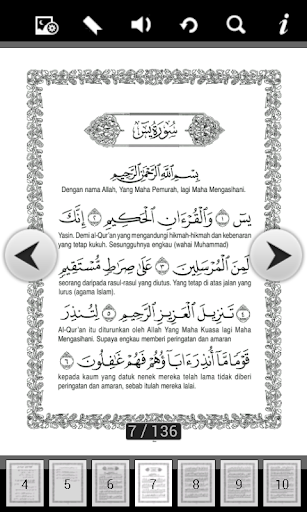 سُورَةُ يسٓ
بِسْمِ اللَّهِ الرَّحْمَٰنِ الرَّحِيمِ
Dengan nama Allah, Yang Maha Pemurah, lagi Maha Mengasihani.
يسٓ ﴿١﴾ وَالْقُرْءَانِ الْحَكِيمِ ﴿٢﴾ إِنَّكَ
Yasin. Demi al-Qur'an yang mengandungi hikmah-hikmah dan kebenaran
yang tetap kukuh. Sesungguhnya engkau (wahai Muhammad)
لَمِنَ الْمُرْسَلِينَ ﴿٣﴾ عَلَىٰ صِرَاطٍ مُّسْتَقِيمٍ
seorang daripada rasul-rasul yang diutus. Yang tetap di atas jalan yang
lurus (agama Islam).
﴿٤﴾ تَنزِيلَ الْعَزِيزِ الرَّحِيمِ ﴿٥﴾ لِتُنذِرَ
Al-Qur'an itu diturunkan oleh Allah Yang Maha Kuasa lagi Maha
Mengasihani. Supaya engkau memberi peringatan dan amaran
قَوْمًا مَّا أُنذِرَ ءَابَاؤُهُمْ فَهُمْ غَافِلُونَ ﴿٦﴾
kepada kaum yang datuk nenek mereka telah lama tidak diberi
peringatan dan amaran, sebab itulah mereka lalai.
7 / 136
4 5 6 7 8 9 10